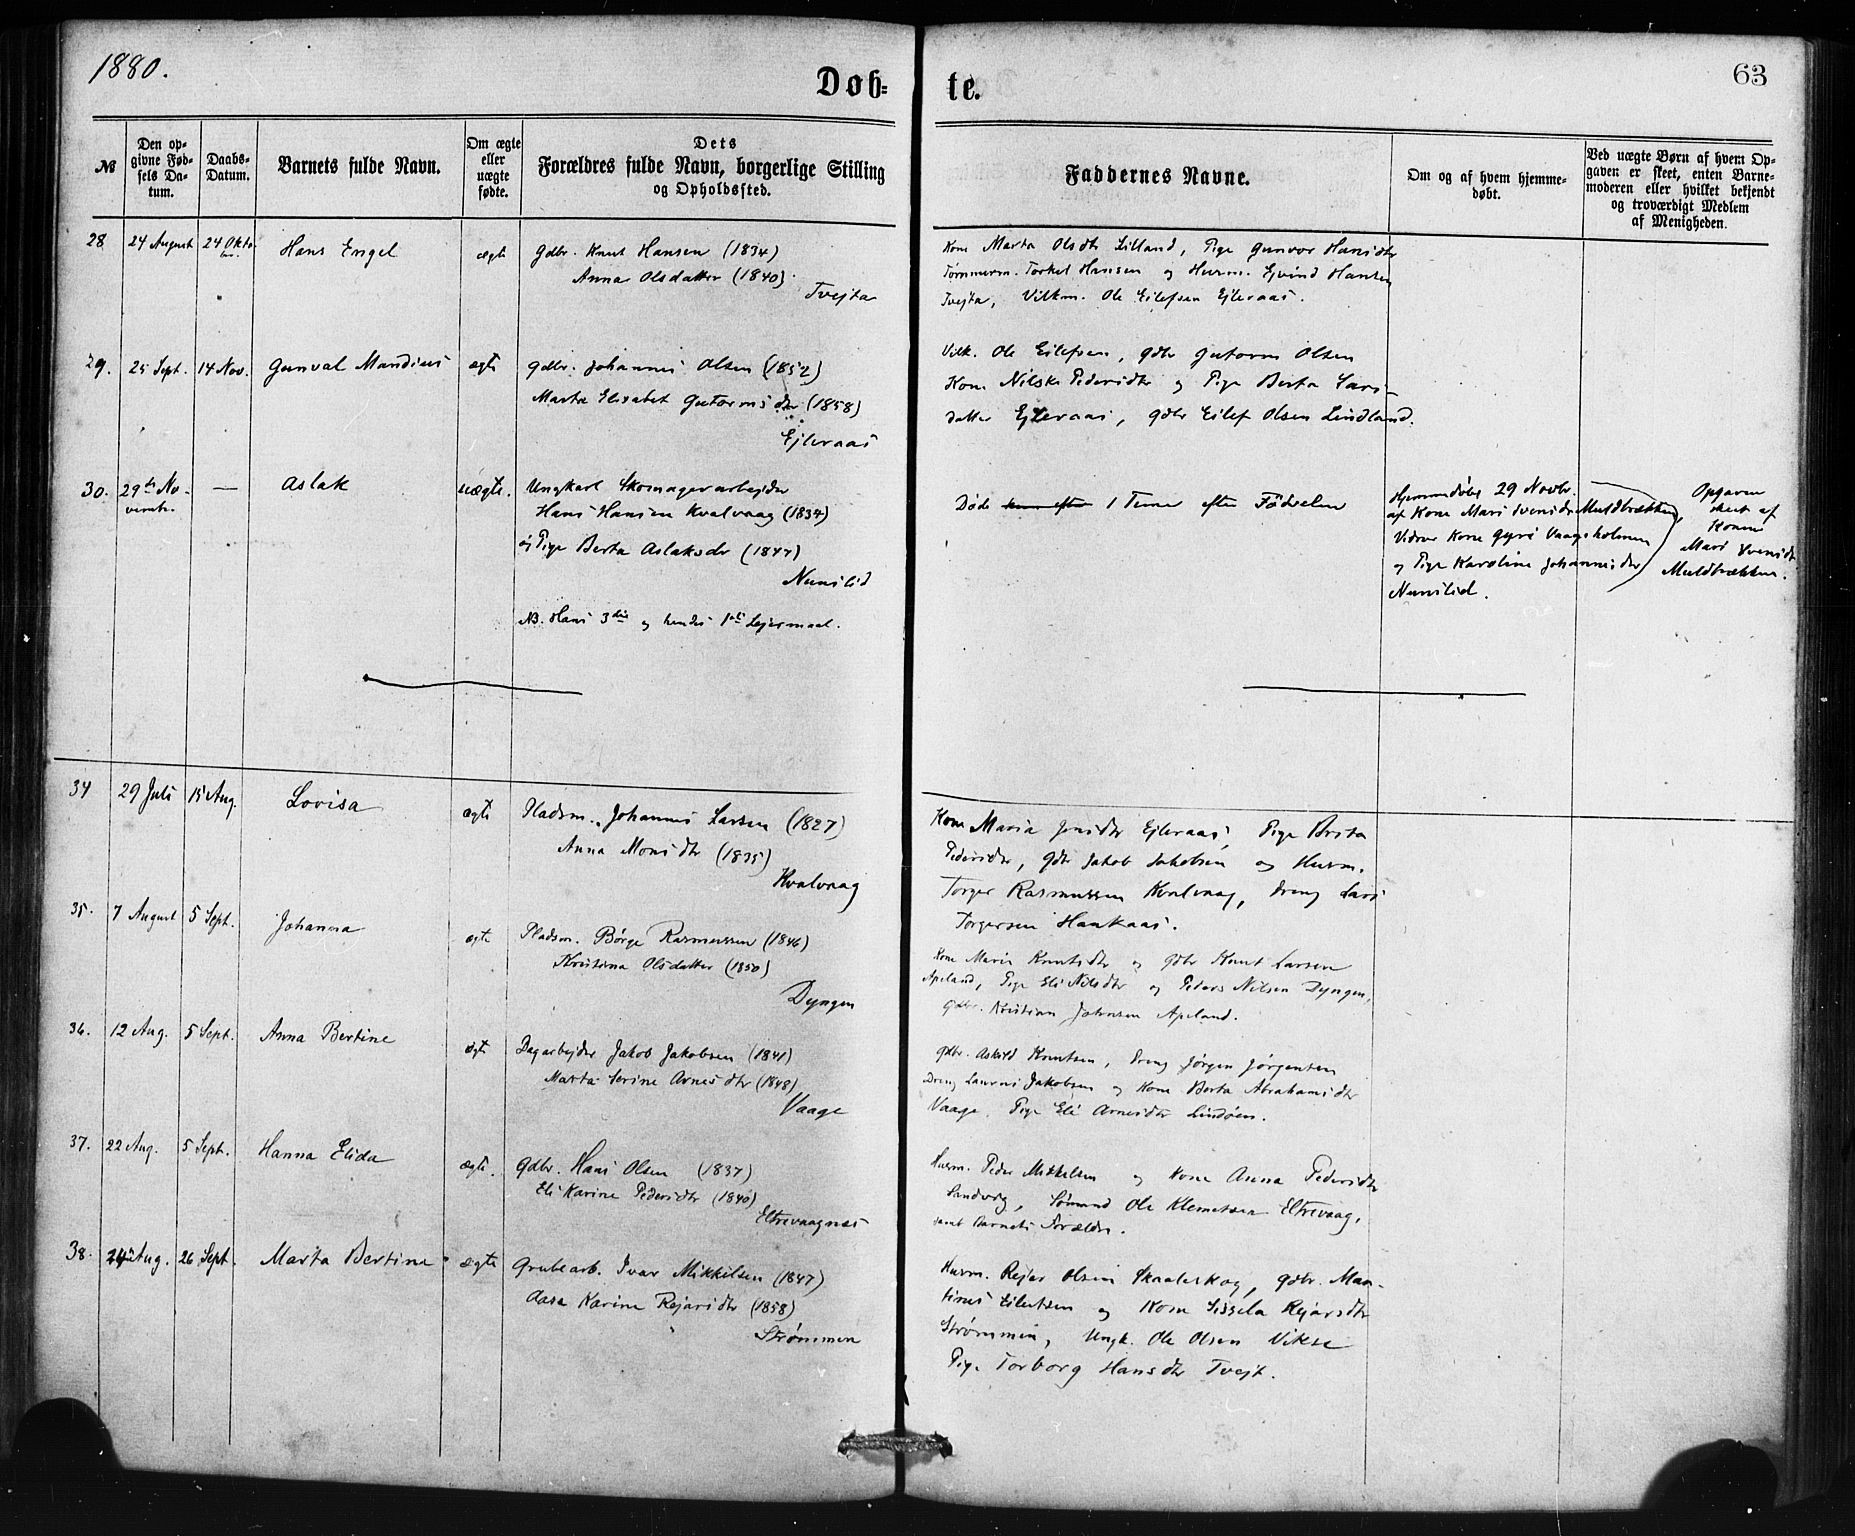 1880.
Døb=
te.
63
№
Den op-
givne Fød-
sels Da-
tum.
Daabs-
Datum.
Barnets fulde Navn.
Om ægte
eller
uægte
fødte.
Dets
Forældres fulde Navn, borgerlige Stilling
og Opholdssted.
Faddernes Navne.
Om og af hvem hjemme-
døbt.
Ved uægte Børn af hvem Op-
gaven er skeet, enten Barne-
moderen eller hvilket bekjendt
og troværdigt Medlem
af Menigheden.
28 24 August 24 Okto Hans Engel ægte Gdbr. Knut Hansen (1834)
Anna Olsdatter (1840)
Tvejta
Kone Marta Olsdtr Lilland, Pige Gunvor Hansdtr
Tømmerm. Torkel Hansen og Husm. Ejvind Hansen
Tvejta, Vilkm. Ole Eilefsen Ejleraas.
29. 25 Sept. 14 Nov. Gunval Mandius ægte Gdbr. Johannes Olsen (1852)
Marta Elisabet Gutormsdtr (1858)
Ejleraas
Vilk. Ole Eilefsen, Gdbr Gutorm Olsen
Kone Nilske Pedersdtr og Pige Berta Lars-
datter Ejleraas, Gdbr Eilef Olsen Lindland.
30. 29de No-
vembr.
— Aslak uægte. Ungkarl Skomagerarbejder
Hans Hansen Kvalvaag (1834)
og Pige Berta Aslaksdr (1847)
Nunslid
NB. Hans 3die og hendes 1ste Lejermaal.
Døde 1 Time efter Fødselen
Hjemmedøbt 29 Novbr.
af Kone Mari Svensdr Muldbrækken,
Vidner Kone Gyri Vaagsholmen
og Pige Karoline Johannesdr
Nunslid.
Opgaven
skeet af
Konen
Mari Svensdr
Muldbrækken.
34 29 Juli 15 Aug. Lovisa ægte Pladsm. Johannes Larsen (1827)
Anna Monsdtr (1835)
Kvalvaag
Kone Maria Jensdtr Ejleraas, Pige Brita
Pedersdtr, Gdbr Jakob Jakobsen og Husm.
Torger Rasmussen Kvalvaag, Dreng Lars
Torgersen Haukaas.
35. 7 August 5 Sept. Johanna ægte Pladsm. Børge Rasmussen (1846)
Kristina Olsdatter (1850)
Dyngen
Kone Maria Knutsdtr og Gdbr Knut Larsen
Apeland, Pige Eli Nilsdtr og Peders Nilsen Dyngen,
Gdbr. Kristian Johnsen Apeland.
36. 12 Aug. 5 Sept. Anna Bertine ægte Dagarbejder Jakob Jakobsen (1841)
Marta Serine Arnesdtr (1848)
Vaage
Gdbr. Askild Knutsen, Dreng Jørgen Jørgensen
Dreng Laurus Jakobsen og Kone Berta Abrahamsdtr
Vaage, Pige Eli Arnesdtr Lindøen.
37. 22 Aug. 5 Sept. Hanna Elida ægte. Gdbr. Hans Olsen (1837)
Eli Karine Pedersdtr (1840)
Eltrevaagnes
Husm. Peder Mikkelsen og Kone Anna Pedersdtr
Sandvig, Sømand Ole Klemetsen Eltrevaag,
samt Barnets Forældre.
38. 24 Aug. 26 Sept. Marta Bertine ægte Grubearb. Ivar Mikkelsen (1847)
Aasa Karina Rejarsdtr (1858)
Strømmen
Husm. Rejar Olsen Skaaleskog, Gdbr. Mar-
tinus Eilertsen og Kone Sissela Rejarsdtr
Strømmen, Ungk. Ole Olsen Vikse
Pige Torborg Hansdtr Tvejt.